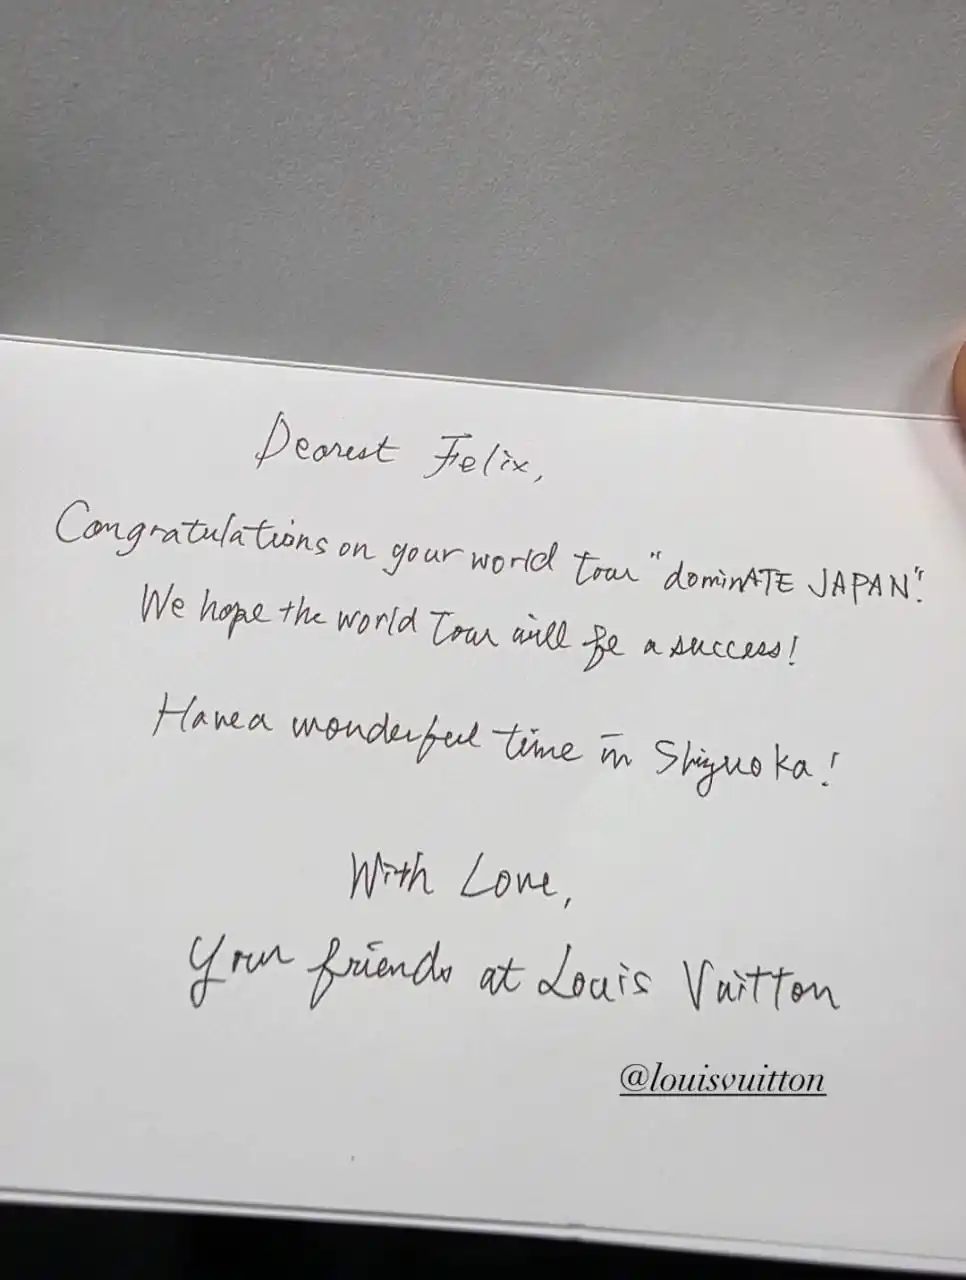 Dearest Felix,
Congratulations on your world tour "dominATE JAPAN".
We hope the world tour will be a success!
Have a wonderful time in Shizuoka!
With Love,
Your friends at Louis Vuitton
@louisvuitton